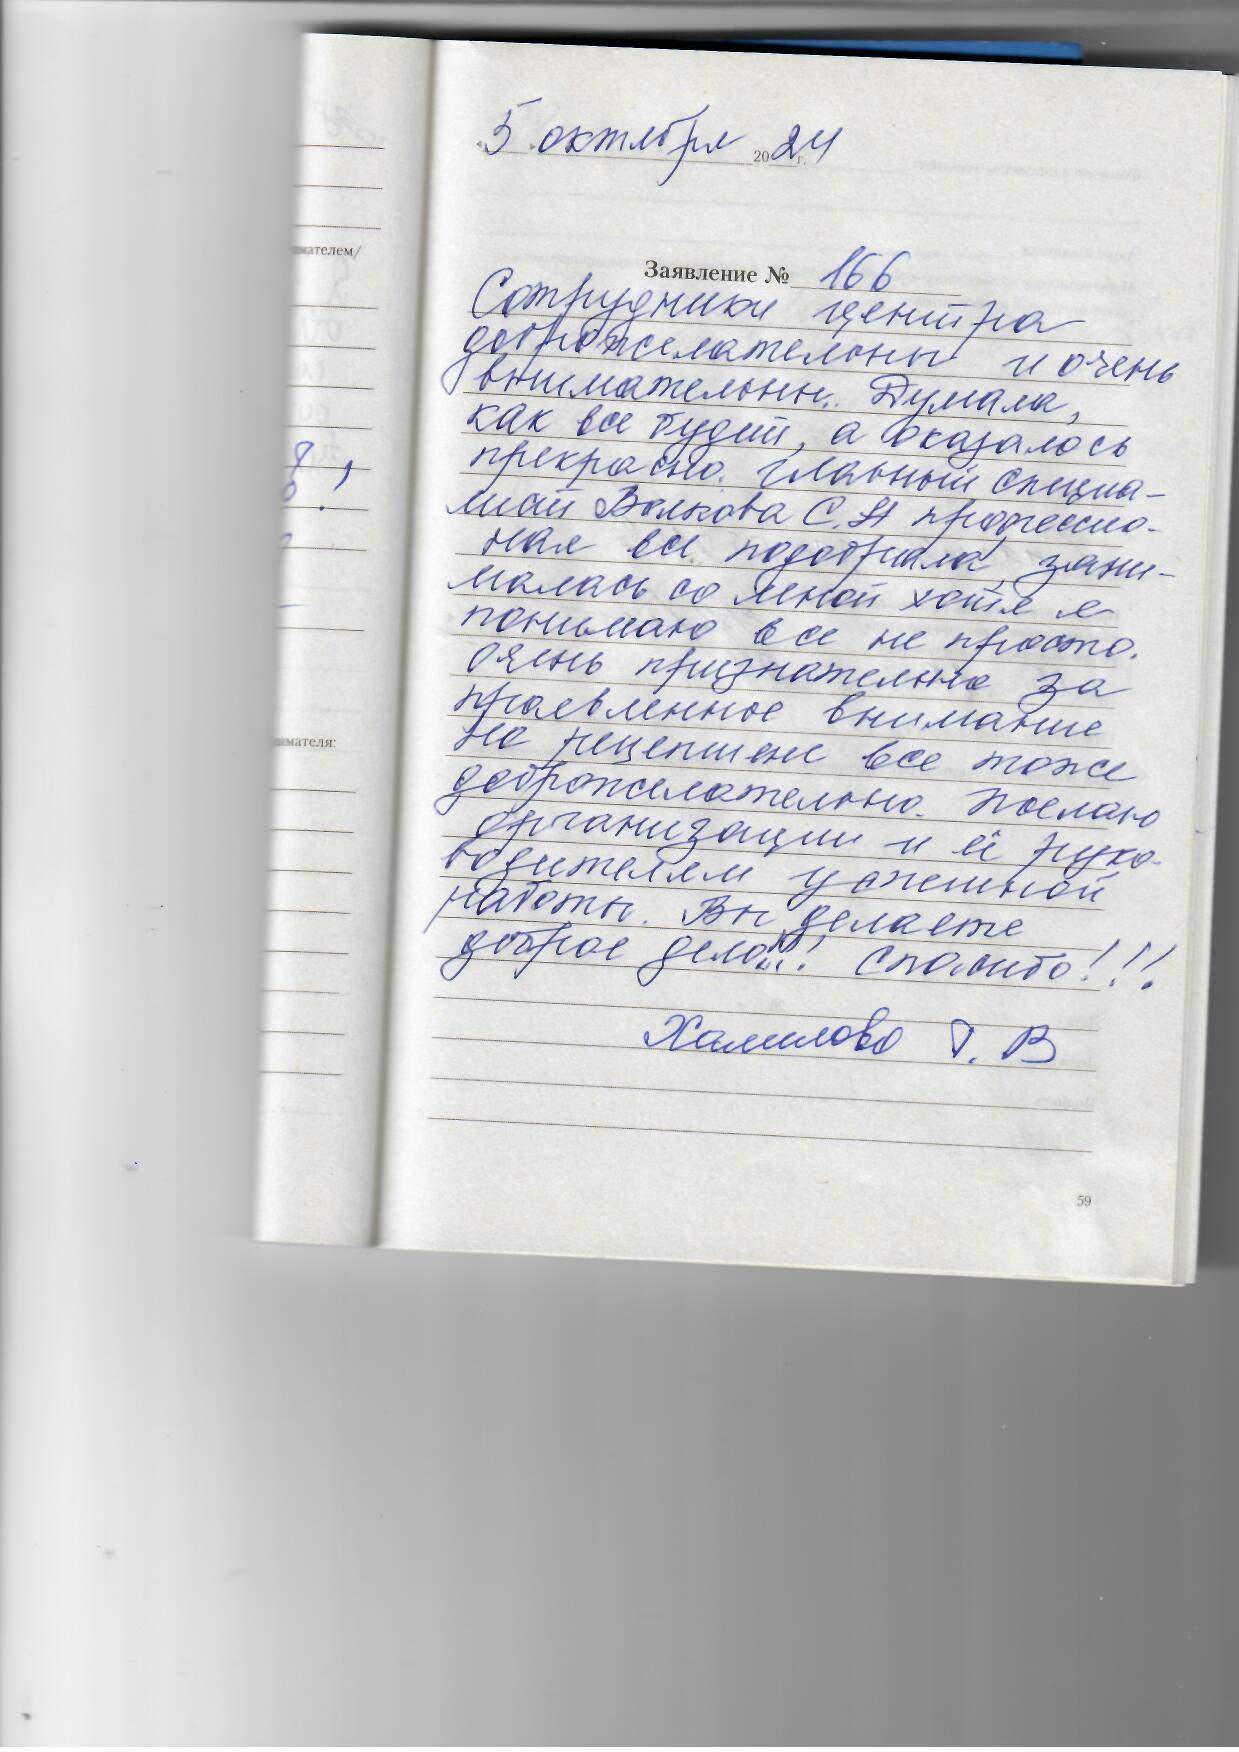 5 октября 2024 г.
имателем/
Заявление № 166
Сотрудники центра
доброжелательны и очень
внимательны. Думала,
как все будет, а оказалось
прекрасно. Главный специа-
лист Волкова С.Н професио-
нал все подобрала, зани-
малась со мной хотя я
понимаю все не просто.
Очень признательна за
проявленное внимание
На рецепшене все тоже
доброжелательно. Желаю
организации и её руко-
водителям успешной
работы. Вы делаете
доброе дело!!! Спасибо!!!
имателя:
Хамилова Т. В
59